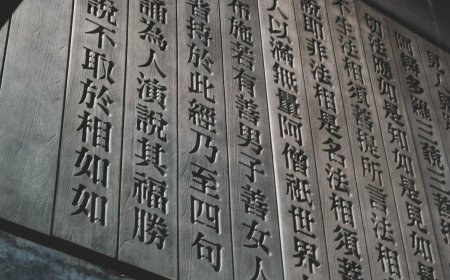 人見
阿耨多羅三藐三
切法應如是知如是見如
不生法相須菩提所言法相
說即非法相是名法相須菩
人以滿無量阿僧祇世界
布施若有善男子善女人
者持於此經乃至四句
誦為人演說其福勝
說不取於相如如